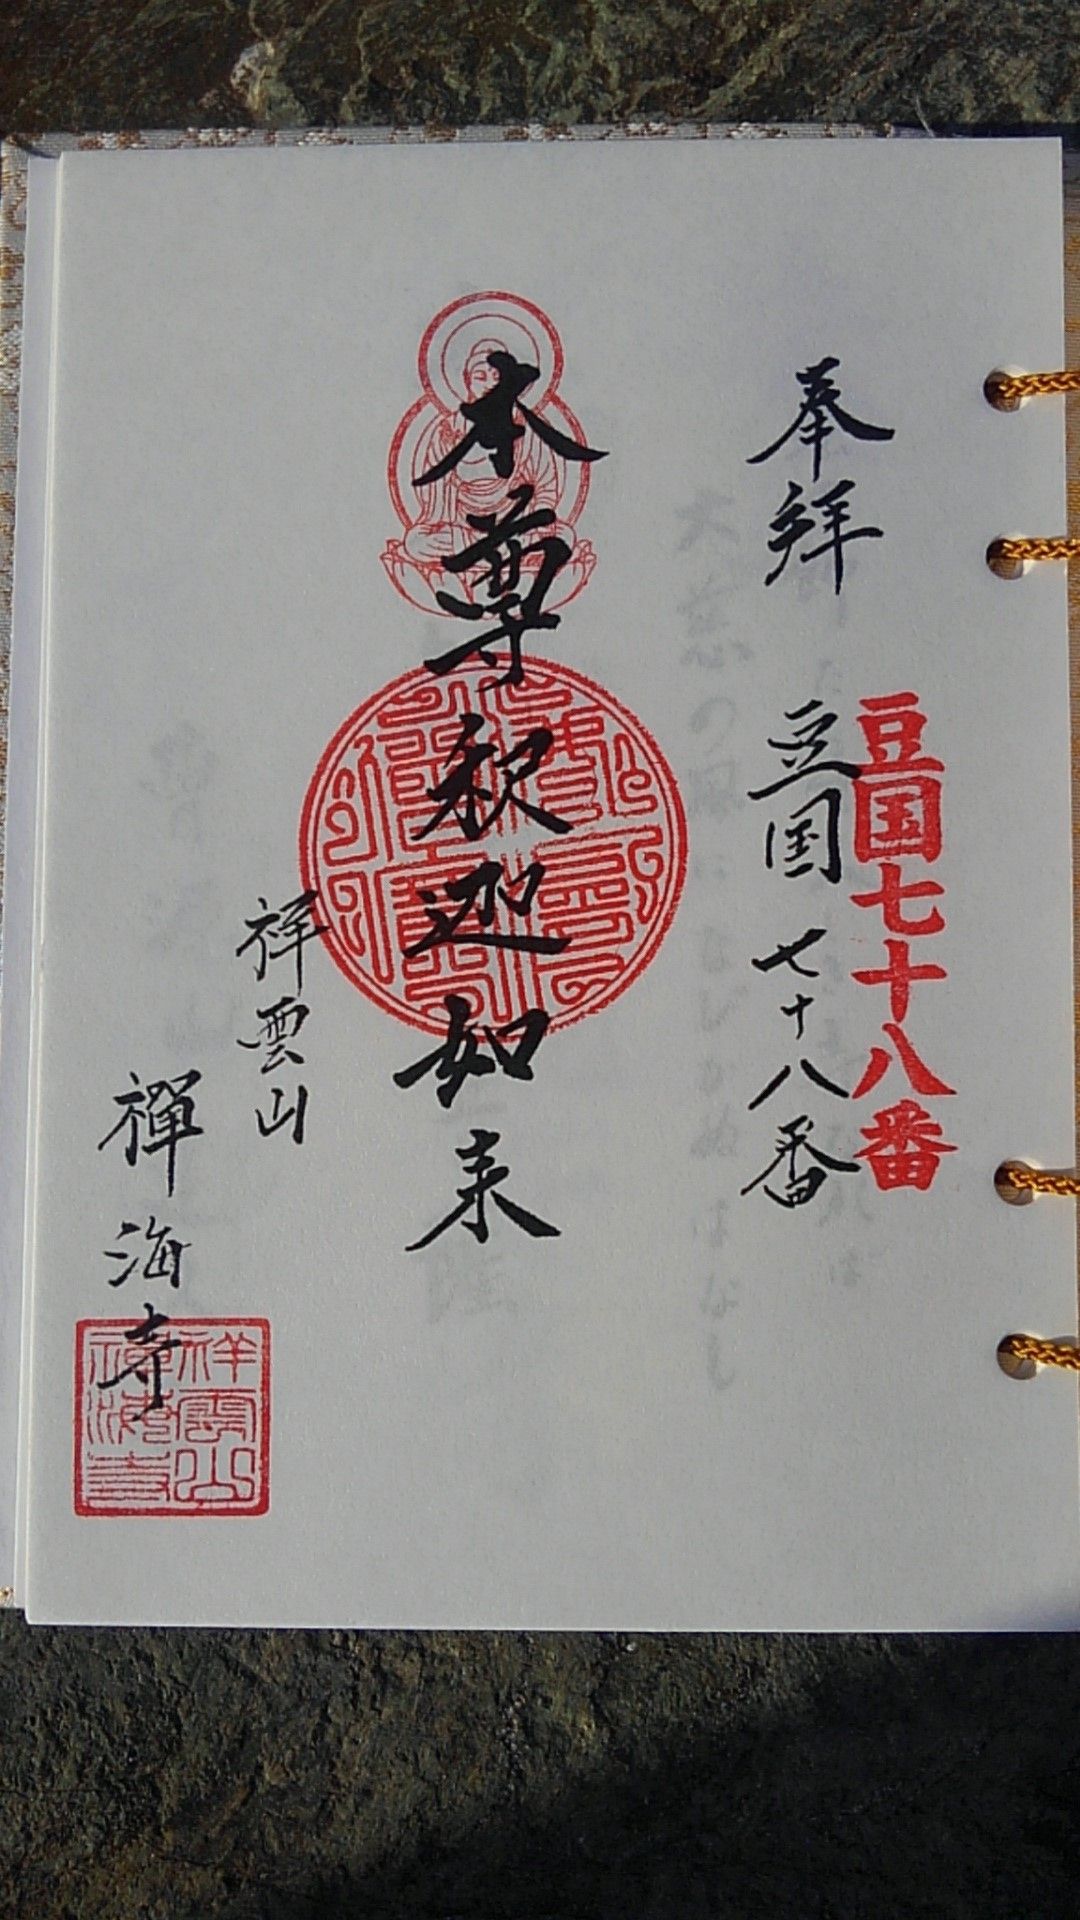 豆国七十八番
奉拝 豆国 七十八番
本尊釈迦如来
祥雲山
禅海寺
祥雲山
禅海寺